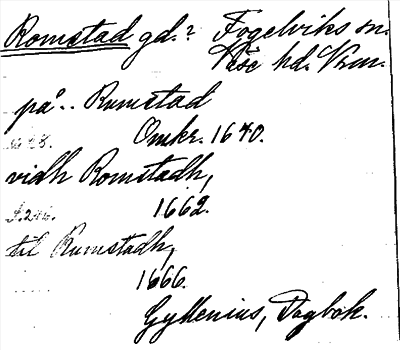 Romstad gd.? Fogelviks sn.
Väse hd. Vrm.
på .. Rumstad
s. 48. Omkr. 1640.
vidh Romstadh,
s. 246. 1662.
til Rumstadh,
1666.
Gyllenius, Dagbok.